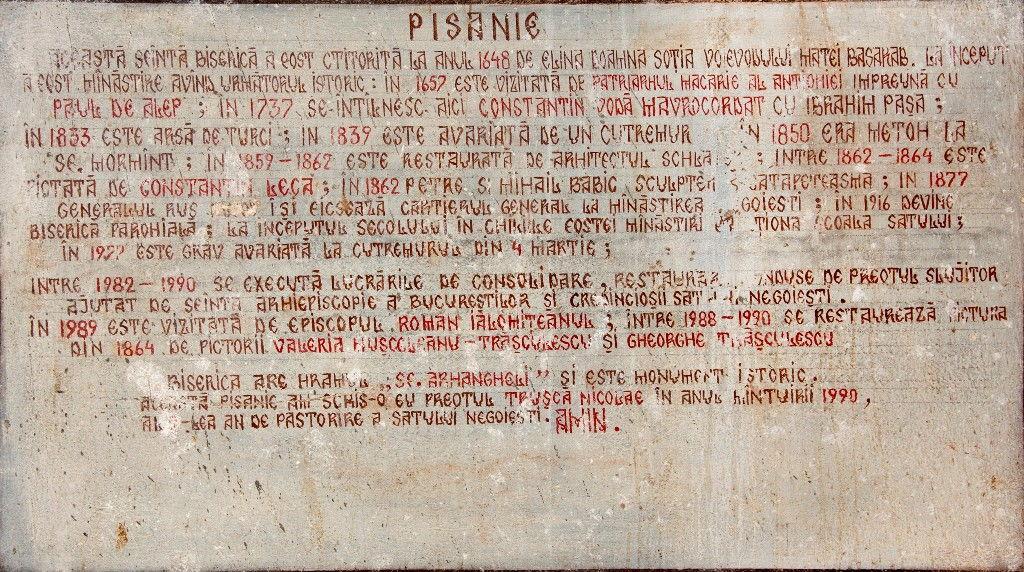 PISANIE
ACEASTĂ SFÎNTĂ BISERICĂ A FOST CTITORITĂ LA ANUL 1648 DE ELINA DOAMNA SOȚIA VOIEVODULUI MATEI BASARAB. LA ÎNCEPUT
A FOST MÎNĂSTIRE AVÎND URMĂTORUL ISTORIC: ÎN 1657 ESTE VIZITATĂ DE PATRIARHUL MACARIE AL ANTIOHIEI ÎMPREUNĂ CU
PAUL DE ALEP; ÎN 1737 SE ÎNTÎLNESC AICI CONSTANTIN VODĂ MAVROCORDAT CU IBRAHIM PAȘA;
ÎN 1833 ESTE ARSĂ DE TURCI; ÎN 1839 ESTE AVARIATĂ DE UN CUTREMUR ÎN 1850 ERA METOH LA
SF. MORMÎNT; ÎN 1859-1862 ESTE RESTAURATĂ DE ARHITECTUL ; ÎNTRE 1862-1864 ESTE
PICTATĂ DE CONSTANTIN LECA; ÎN 1862 PETRE S. MIHAIL BABIC SCULPTEAZĂ CATAPETEASMA; ÎN 1877
GENERALUL RUS ÎȘI FIXEAZĂ CARTIERUL GENERAL LA MÎNĂSTIREA NEGOIEȘTI; ÎN 1916 DEVINE
BISERICĂ PAROHIALĂ; LA ÎNCEPUTUL SECOLULUI ÎN CHILIILE FOSTEI MÎNĂSTIRI FUNCȚIONA ȘCOALA SATULUI;
ÎN 1977 ESTE GRAV AVARIATĂ LA CUTREMURUL DIN 4 MARTIE;
ÎNTRE 1982-1990 SE EXECUTĂ LUCRĂRILE DE CONSOLIDARE, RESTAURARE CONDUSE DE PREOTUL SLUJITOR
AJUTAT DE SFÎNTA ARHIEPISCOPIE A BUCUREȘTILOR ȘI CREDINCIOȘII SATULUI NEGOIEȘTI.
ÎN 1989 ESTE VIZITATĂ DE EPISCOPUL ROMAN IALOMIȚEANUL; ÎNTRE 1988-1990 SE RESTAUREAZĂ PICTURA
DIN 1864 DE PICTORII VALERIA MUȘCELEANU-TRĂȘCULESCU ȘI GHEORGHE TRĂȘCULESCU
BISERICA ARE HRAMUL „SF. ARHANGHELI" ȘI ESTE MONUMENT ISTORIC.
ACEASTĂ PISANIE AM SCRIS-O EU PREOTUL TRUȘCĂ NICOLAE ÎN ANUL MÎNTUIRII 1990,
AL -LEA AN DE PĂSTORIRE A SATULUI NEGOIEȘTI. AMIN.